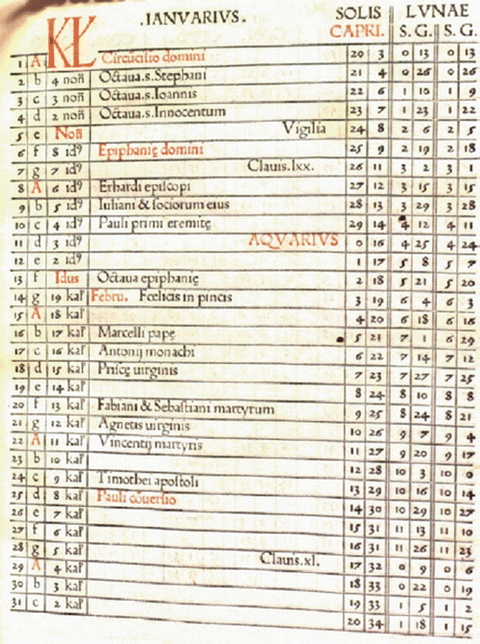 .IANVARIVS. SOLIS LVNAE
KL CAPRI. S. G. S. G.
1 A Circūcisio domini 20 3 0 13 0 13
2 b 4 noñ Octaua.s.Stephani 21 4 0 26 0 26
3 c 3 noñ Octaua.s.Ioannis 22 6 1 10 1 9
4 d 2 noñ Octaua.s.Innocentum 23 7 1 23 1 22
5 e Noñ Vigilia 24 8 2 6 2 5
6 f 8 idꝰ Epiphanię domini 25 9 2 19 2 18
7 g 7 idꝰ Clauis.lxx. 26 11 3 2 3 1
8 A 6 idꝰ Erhardi episcopi 27 12 3 15 3 15
9 b 5 idꝰ Iuliani & sociorum eius 28 13 3 29 3 28
10 c 4 idꝰ Pauli primi eremitę 29 14 4 12 4 11
11 d 3 idꝰ AQVARIVS 0 16 4 25 4 24
12 e 2 idꝰ 1 17 5 8 5 7
13 f Idus Octaua epiphanię 2 18 5 21 5 20
14 g 19 kał Febru. Fœlicis in pincis 3 19 6 4 6 3
15 A 18 kał 4 20 6 18 6 16
16 b 17 kał Marcelli papę 5 21 7 1 6 29
17 c 16 kał Antonij monachi 6 22 7 14 7 12
18 d 15 kał Priscę uirginis 7 23 7 27 7 25
19 e 14 kał 8 24 8 10 8 8
20 f 13 kał Fabiani & Sebastiani martyrum 9 25 8 24 8 21
21 g 12 kał Agnetis uirginis 10 26 9 7 9 4
22 A 11 kał Vincentij martyris 11 27 9 20 9 17
23 b 10 kał 12 28 10 3 10 0
24 c 9 kał Timothei apostoli 13 29 10 16 10 14
25 d 8 kał Pauli cōuersio 14 30 10 29 10 27
26 e 7 kał 15 31 11 13 11 10
27 f 6 kał 16 31 11 26 11 23
28 g 5 kał Clauis.xl. 17 32 0 9 0 6
29 A 4 kał 18 33 0 22 0 19
30 b 3 kał 19 33 1 5 1 2
31 c 2 kał 20 34 1 18 1 15